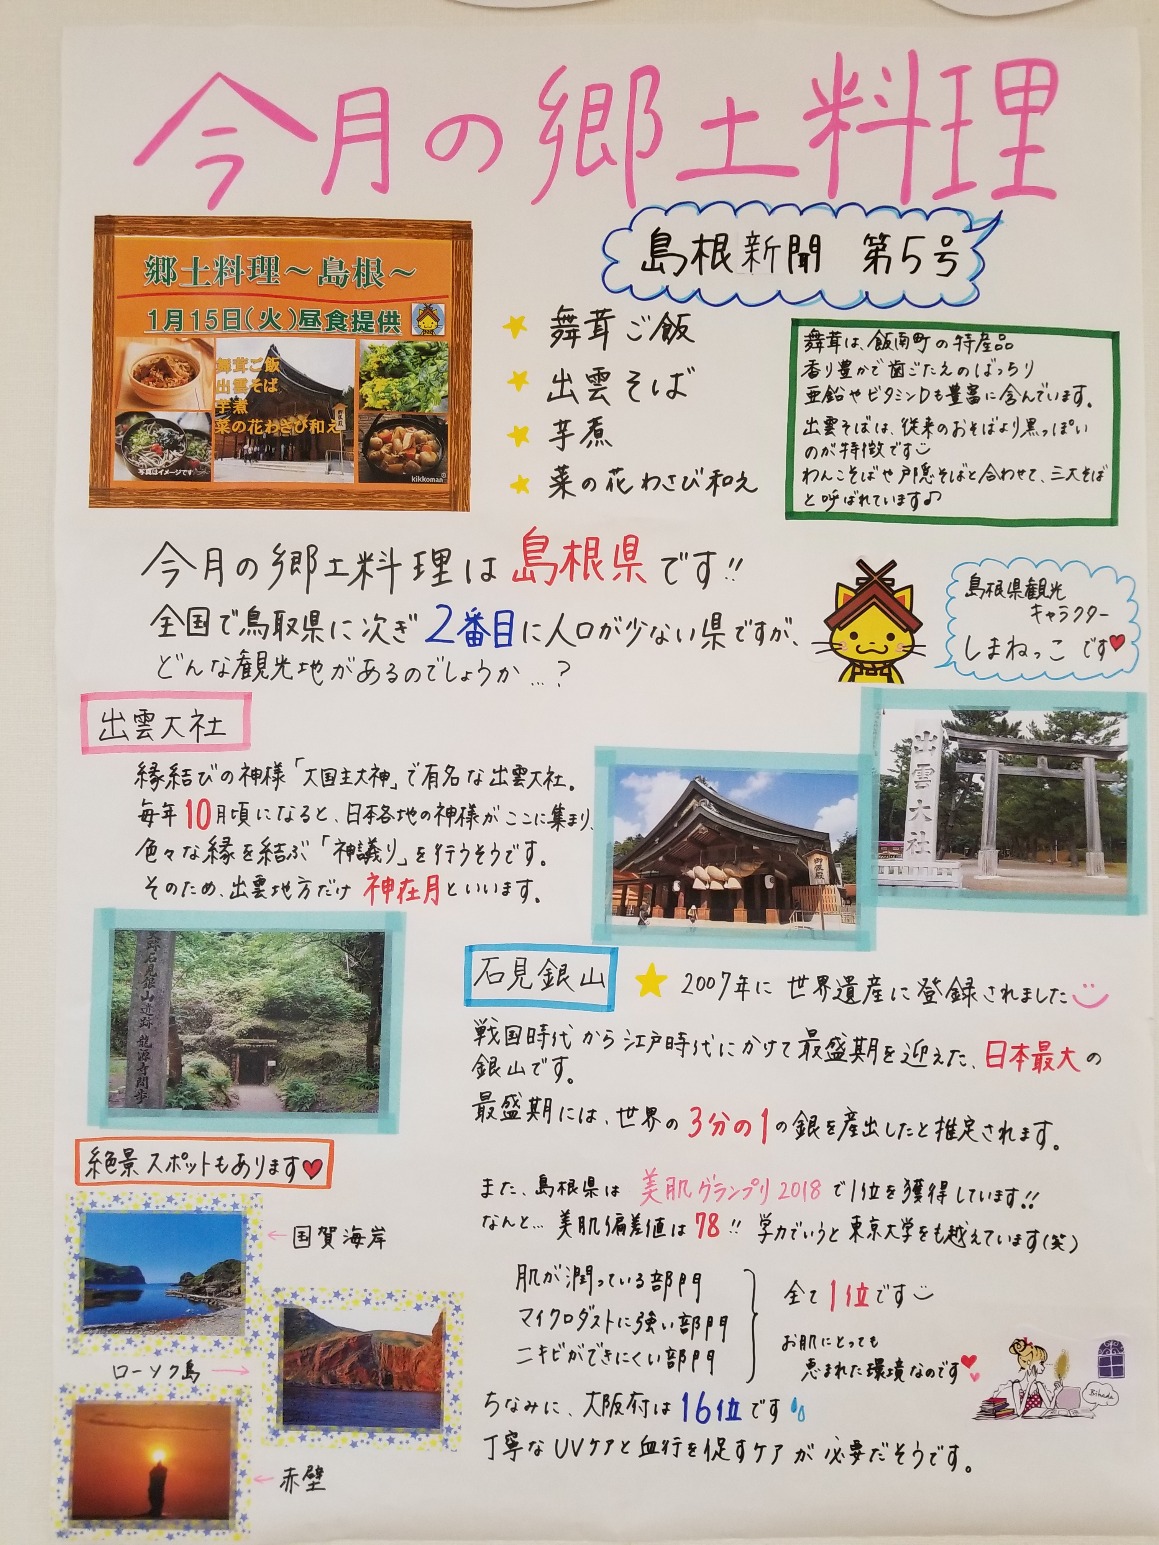 今月の郷土料理
島根新聞 第5号
郷土料理~島根~
1月15日(火)昼食提供
舞茸ご飯
出雲そば
芋煮
菜の花わさび和え
写真はイメージです
kikkoman
舞茸ご飯
出雲そば
芋煮
菜の花わさび和え
舞茸は、飯南町の特産品
香り豊かで歯ごたえのばっちり
亜鉛やビタミンDも豊富に含んでいます。
出雲そばは、従来のおそばより黒っぽい
のが特徴です
わんこそばや戸隠そばと合わせて、三大そば
と呼ばれています♪
今月の郷土料理は島根県です!!
全国で鳥取県に次ぎ2番目に人口が少ない県ですが、
どんな観光地があるのでしょうか…?
島根県観光
キャラクター
しまねっこです♥
出雲大社
縁結びの神様「大国主大神」で有名な出雲大社。
毎年10月頃になると、日本各地の神様がここに集まり、
色々な縁を結ぶ「神議り」を行うそうです。
そのため、出雲地方だけ神在月といいます。
出雲大社
御慶殿
石見銀山
★2007年に世界遺産に登録されました
戦国時代から江戸時代にかけて最盛期を迎えた、日本最大の
銀山です。
最盛期には、世界の3分の1の銀を産出したと推定されます。
石見銀山遺跡 龍源寺間歩
絶景スポットもあります♥
←国賀海岸
ローソク島→
←赤壁
また、島根県は美肌グランプリ2018で1位を獲得しています!!
なんと…美肌偏差値は78!!学力でいうと東京大学をも越えています(笑)
肌が潤っている部門
マイクロダストに強い部門
ニキビができにくい部門
全て1位です
お肌にとっても
恵まれた環境なのです♥
Bihada
ちなみに、大阪府は16位です
丁寧なUVケアと血行を促すケアが必要だそうです。